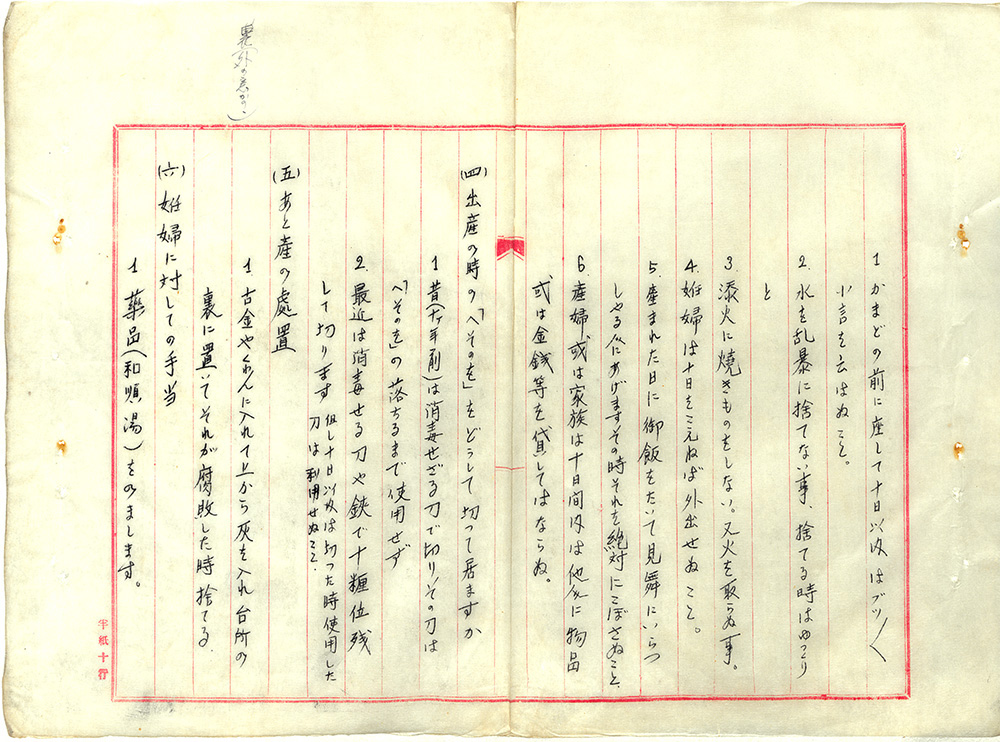 1 かまどの前に座して十日以内はブツ〱
小言を云はぬこと。
2. 水を乱暴に捨てない事、捨てる時はゆっくり
と
3. 添火に燒きものをしない。又火を取らぬ事。
4. 妊婦は十日をこえねば外出せぬこと。
5. 産まれた日に御飯をたいて見舞にいらつ
しやる人にあげますその時それを絶対にこぼさぬこと、
6. 産婦或は家族は十日間内は他家に物品
或は金銭等を貸してはならぬ。
(四) 出産の時の「へその を」をどうして切って居ますか
1 昔(十年前)は消毒せざる刀で切りその刀は
「へその を」の落ちるまで使用せず
2. 最近は消毒せる刀や鋏で十糎位残
して切ります 但し十日以内は切つた時使用した
刀は利用せぬこと.
(五) あと産の處置
1. 古金やくわんに入れて上から灰を入れ台所の
裏に置いてそれが腐敗した時捨てる.
(六) 妊婦に対しての手当
1 藥品(和順湯)をのまします。
半紙十行